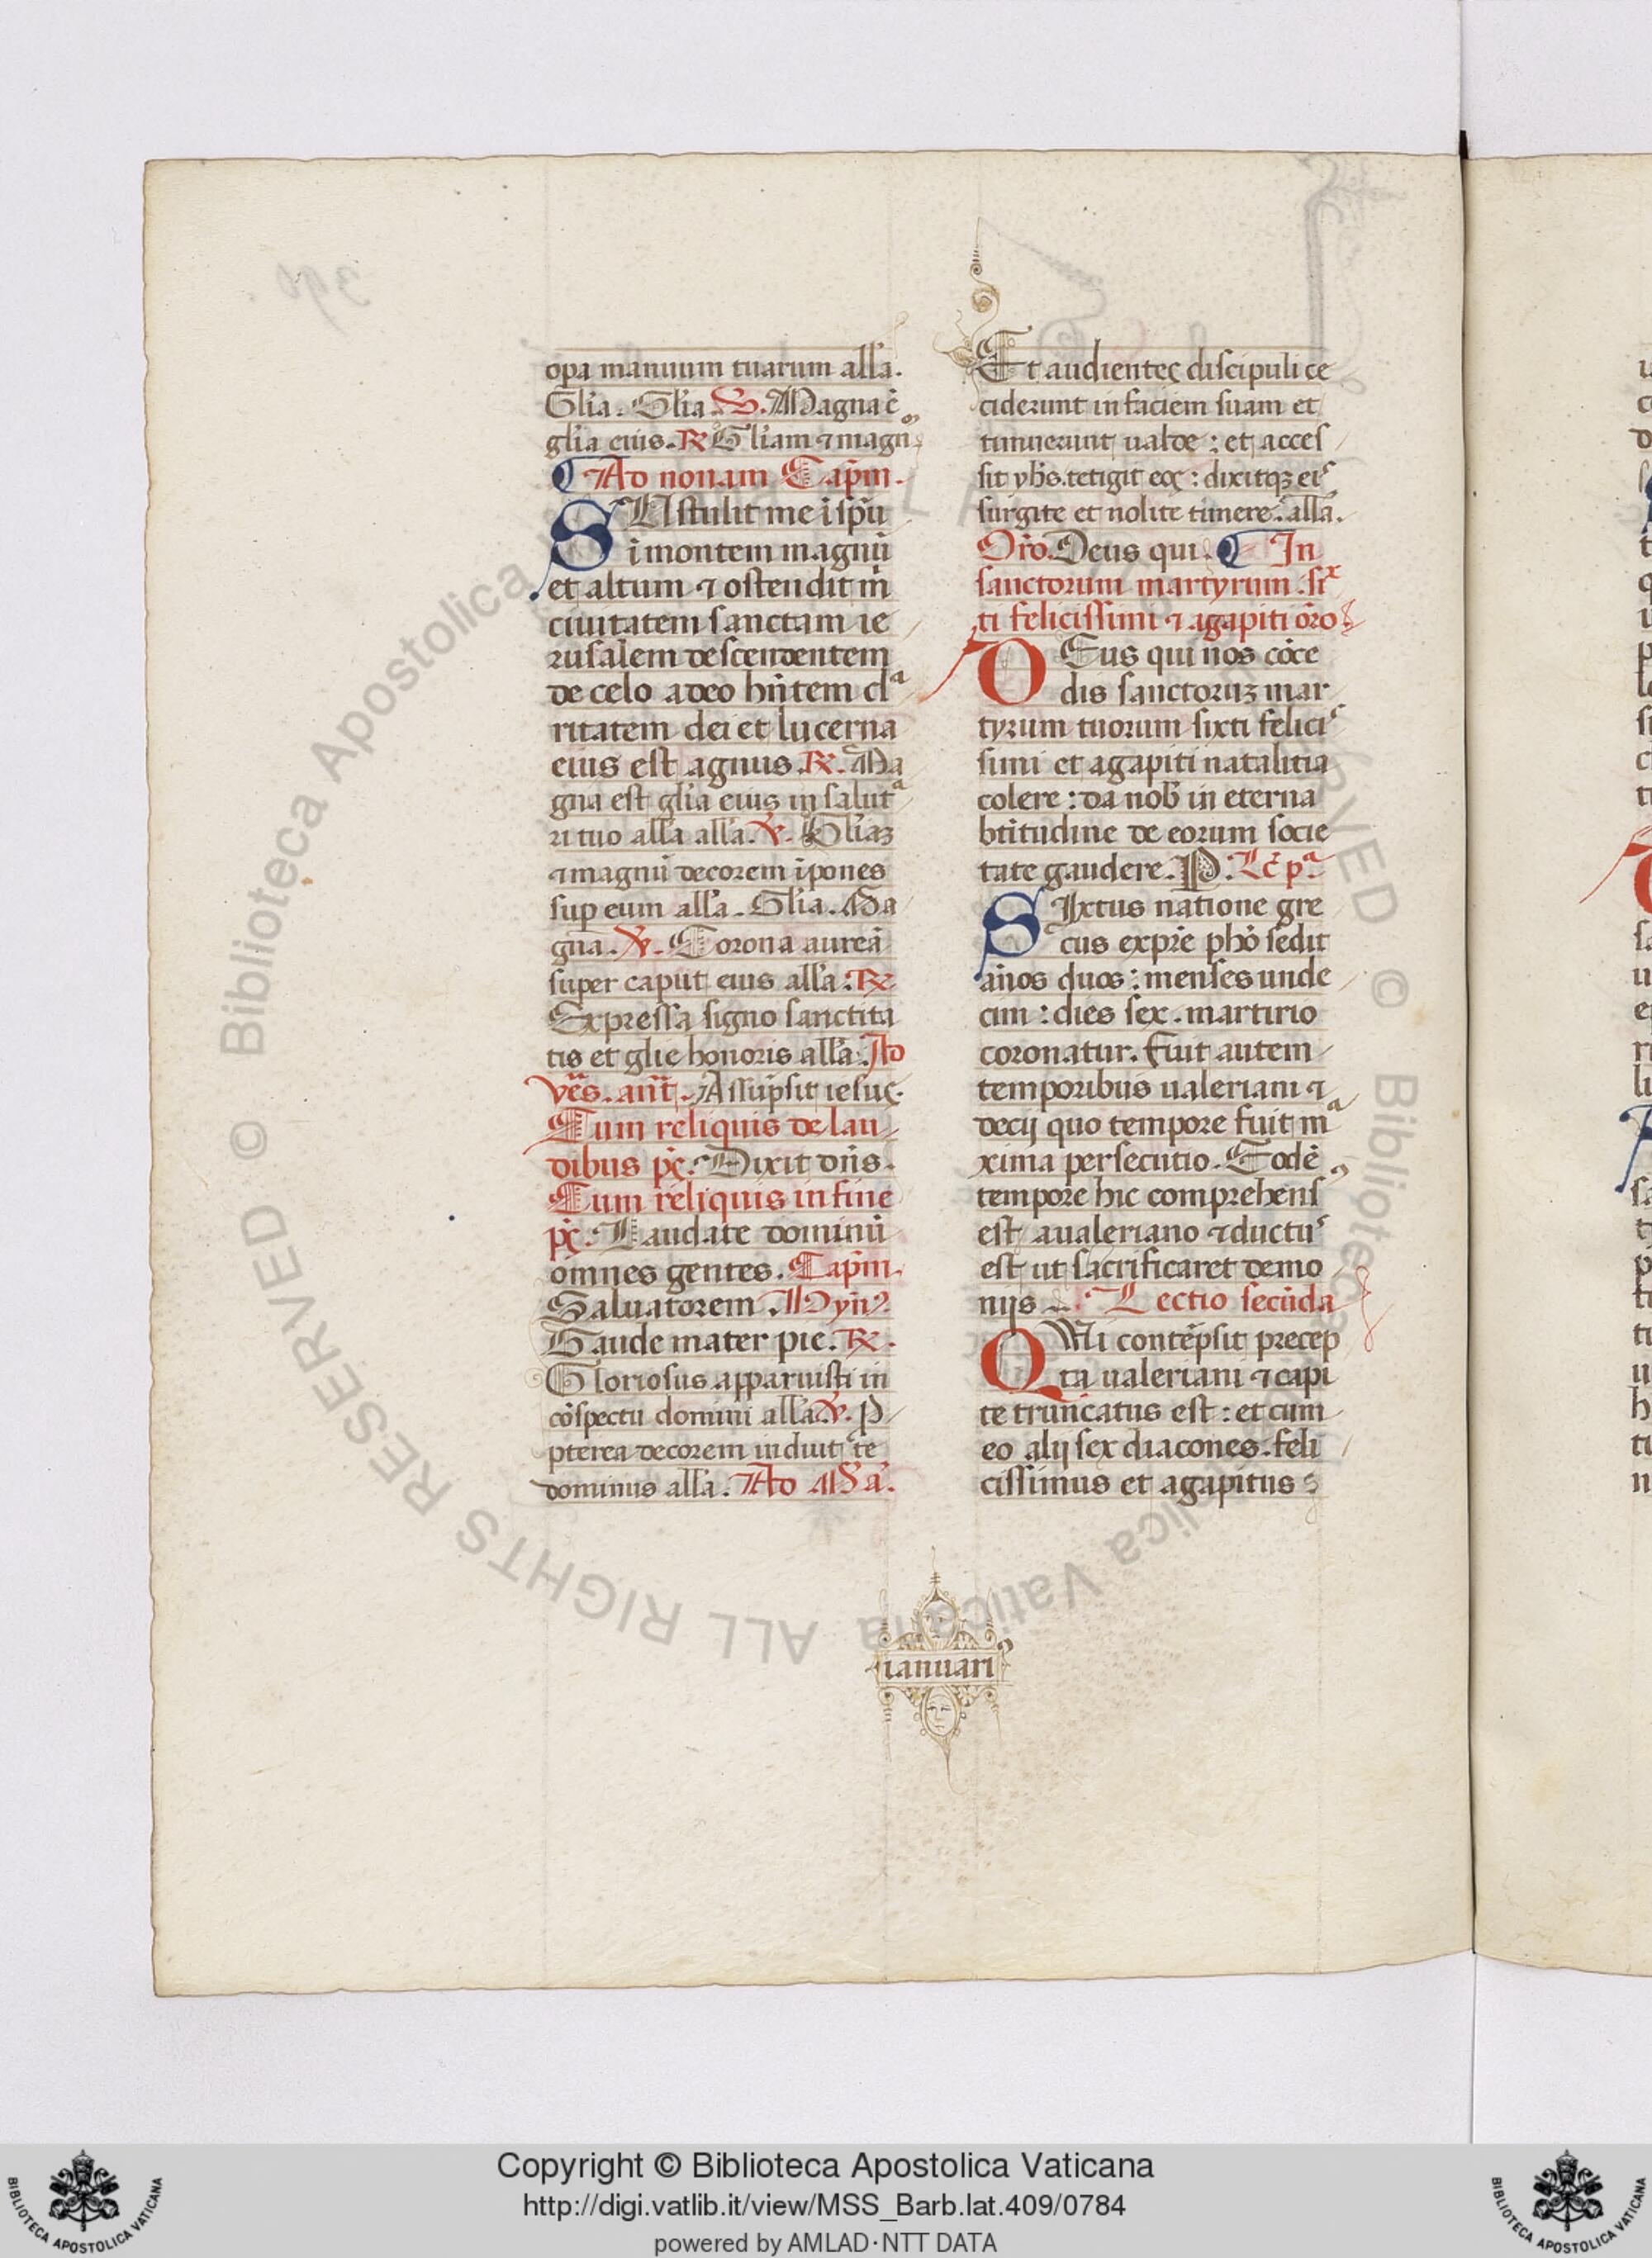 opa manuum tuarum all'a.
Gl'ia. Gl'ia. V. Magna ē
gl'ia eius. R Gl'iam ⁊ magn̄
Ad nonam Cap̄m.
SUstulit me ī sp̄u
ī montem magnū
et altum ⁊ ostendit m̄
ciuitatem sanctam ie
rusalem descendentem
de celo adeo hn̄tem clᵃ
ritatem dei et lucerna
eius est agnus. R. Ma
gna est gl'ia eius in salutᵃ
ri tuo all'a all'a. V. Gl'iaꝫ
⁊ magnū decorem īpones
sup eum all'a. Gl'ia. Ma
gna. V. Corona aureā
super caput eius all'a. R.
Expressa signo sanctita
tis et gl'ie honoris all'a. Ad
ves. an̄t. Assūpsit iesus.
Cum reliquis de lau
dibus pṡ. Dixit dn̄s.
Cum reliquis in fine
pṡ. Laudate dominū
omnes gentes. Cap̄m.
Saluatorem. Hyn̄ꝰ.
Gaude mater pie. R.
Gloriosus apparuisti in
cōspectu domini all'a. V. P
pterea decorem induit te
dominus all'a. Ad Ma.
Et audientes discipuli ce
ciderunt in faciem suam et
timuerunt ualde : et acces
sit yh̄s. tetigit eos : dixitqꝫ eiˢ
surgite et nolite timere. all'a.
Or̄o. Deus qui. In
sanctorum martyrum. siˣ
ti felicissimi ⁊ agapiti ōro
DEus qui nos cōce
dis sanctoruꝫ mar
tyrum tuorum sixti feliciˢ
simi et agapiti natalitia
colere : da nob̄ in eterna
bt̄itudine de eorum socie
tate gaudere. P. Lc̄ pᵃ
SIxtus natione gre
cus expr̄e pho sedit
an̄os duos : menses unde
cim : dies sex. martirio
coronatur. Fuit autem
temporibus ualeriani ⁊
decij quo tempore fuit mᵃ
xima persecutio. Eodē
tempore hic comprehensꝰ
est aualeriano ⁊ ductuˢ
est ut sacrificaret demo
nijs. Lectio secūda
QUi contēpsit precep
ta ualeriani ⁊ capi
te truncatus est : et cum
eo alij sex diacones. feli
cissimus et agapitus
ianuariꝰ
Copyright © Biblioteca Apostolica Vaticana
http://digi.vatlib.it/view/MSS_Barb.lat.409/0784
powered by AMLAD·NTT DATA